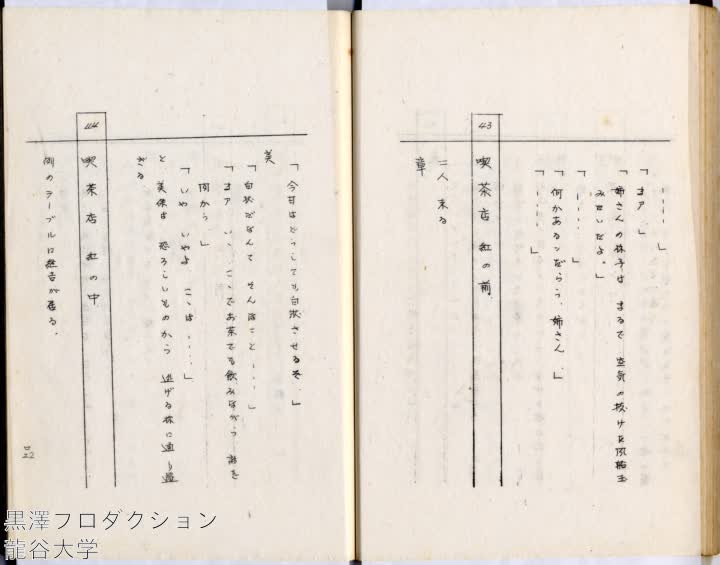 「‥‥」
「オア、」
「姉さんの様子は まるで 空気の抜けた風船玉
みたいだよ。」
「‥‥」
「何かあるンだらう、姉さん、」
「‥‥」
43
喫茶店 紅の前
二人 来る
章
「今日はどうしても白状させるぞ、」
美
「白状だなんて そんなこと‥‥」
「オア、いゝ、こゝでお茶でも飲みながら 話を
伺から、」
「いや いやよ こゝは‥‥」
と 美保は 恐ろしいものから 逃げる様に通り過
ぎる
44
喫茶店 紅の中
例のテーブルに 居る、
22
黒澤プロダクション
龍谷大学